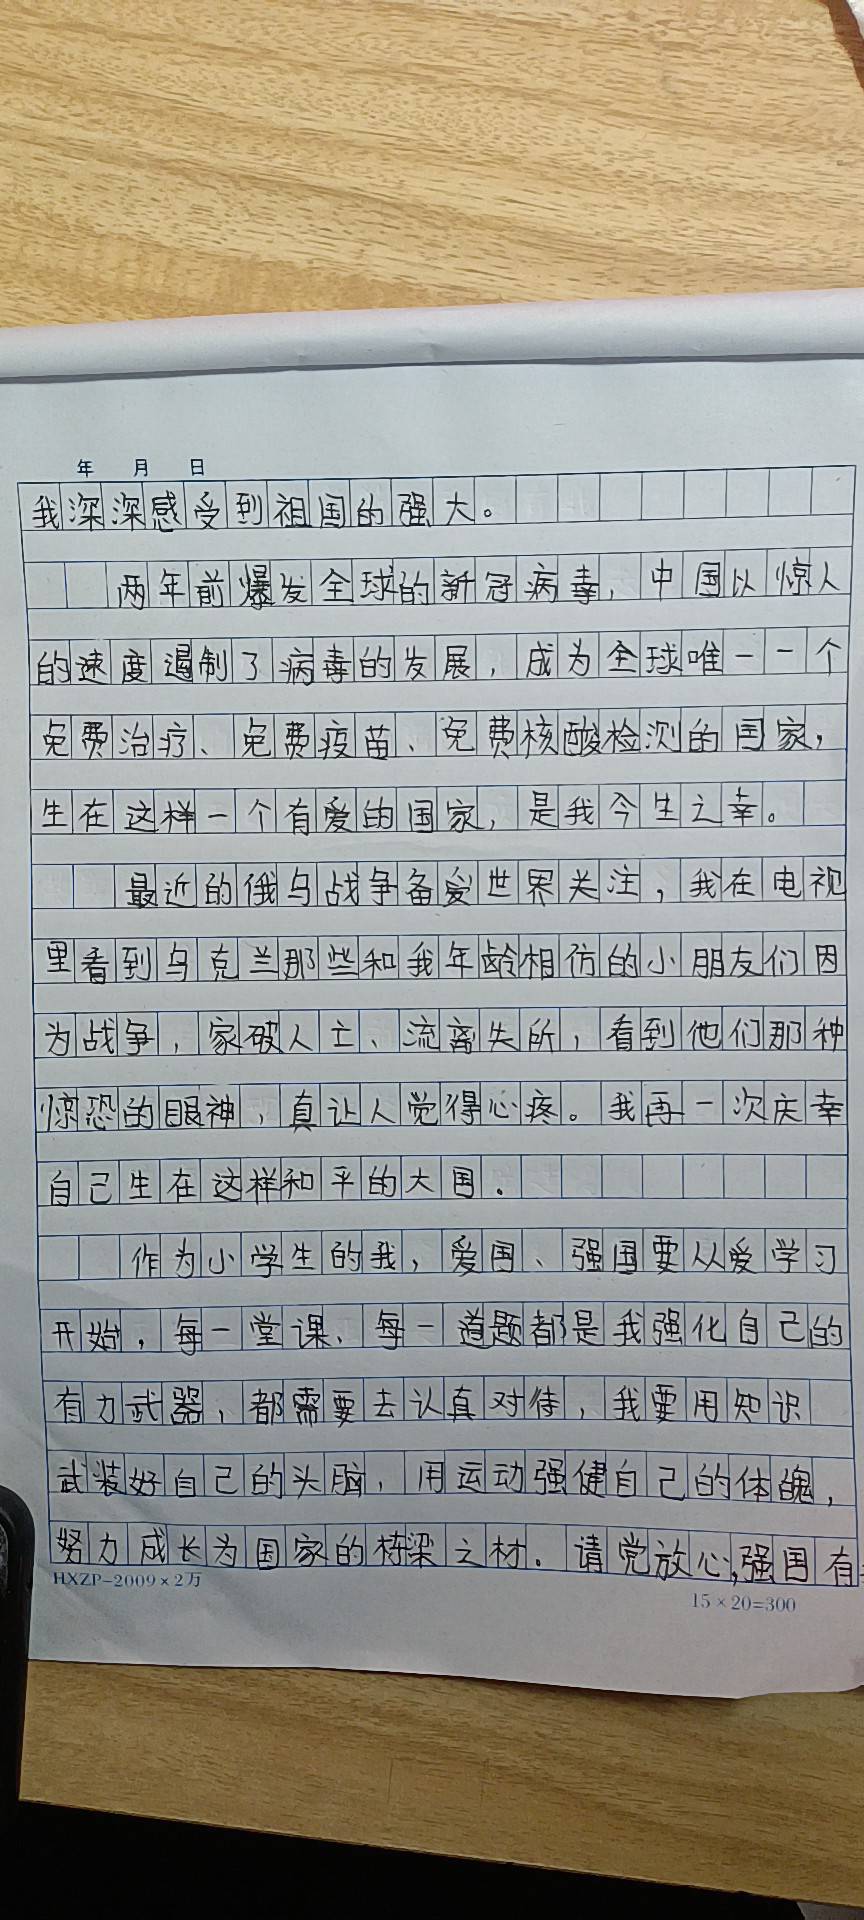 年 月 日
我深深感受到祖国的强大。
两年前爆发全球的新冠病毒,中国以惊人
的速度遏制了病毒的发展,成为全球唯一一个
免费治疗、免费疫苗、免费核酸检测的国家,
生在这样一个有爱的国家,是我今生之幸。
最近的俄乌战争备受世界关注,我在电视
里看到乌克兰那些和我年龄相彷的小朋友们因
为战争,家破人亡、流离失所,看到他们那种
惊恐的眼神,真让人觉得心疼。我再一次庆幸
自己生在这样和平的大国。
作为小学生的我,爱国、强国要从爱学习
开始,每一堂课、每一道题都是我强化自己的
有力武器,都需要去认真对待,我要用知识
武装好自己的头脑,用运动强健自己的体魄,
努力成长为国家的栋梁之材。请党放心,强国有
HXZP-2009×2万
15×20=300